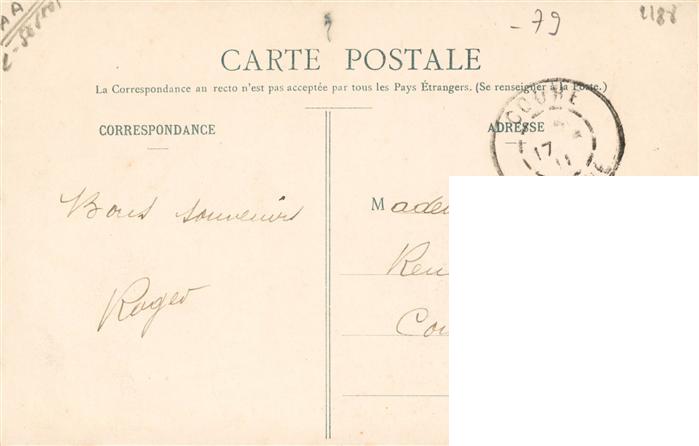 -79
2188
CARTE POSTALE
La Correspondance au recto n'est pas acceptée par tous les Pays Étrangers. (Se renseigner à la Poste.)
CORRESPONDANCE
ADRESSE
COUHE
17
11
Bons souvenirs
Roger
Madem
Ren
Cou